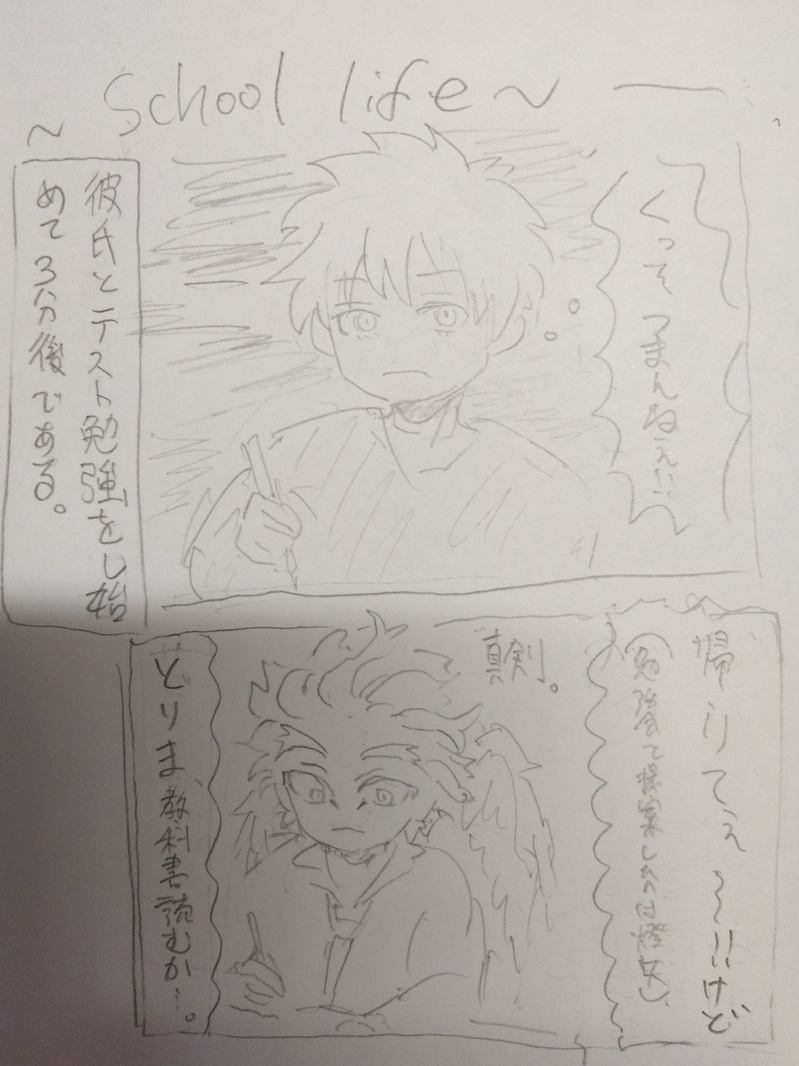 ~ School life ~
くっそつまんねえ!!
彼氏とテスト勉強をし始
めて3分後である。
帰りてえ〜!!けど
(勉強会て提案したの
真剣。
とりま教科書読むか…。